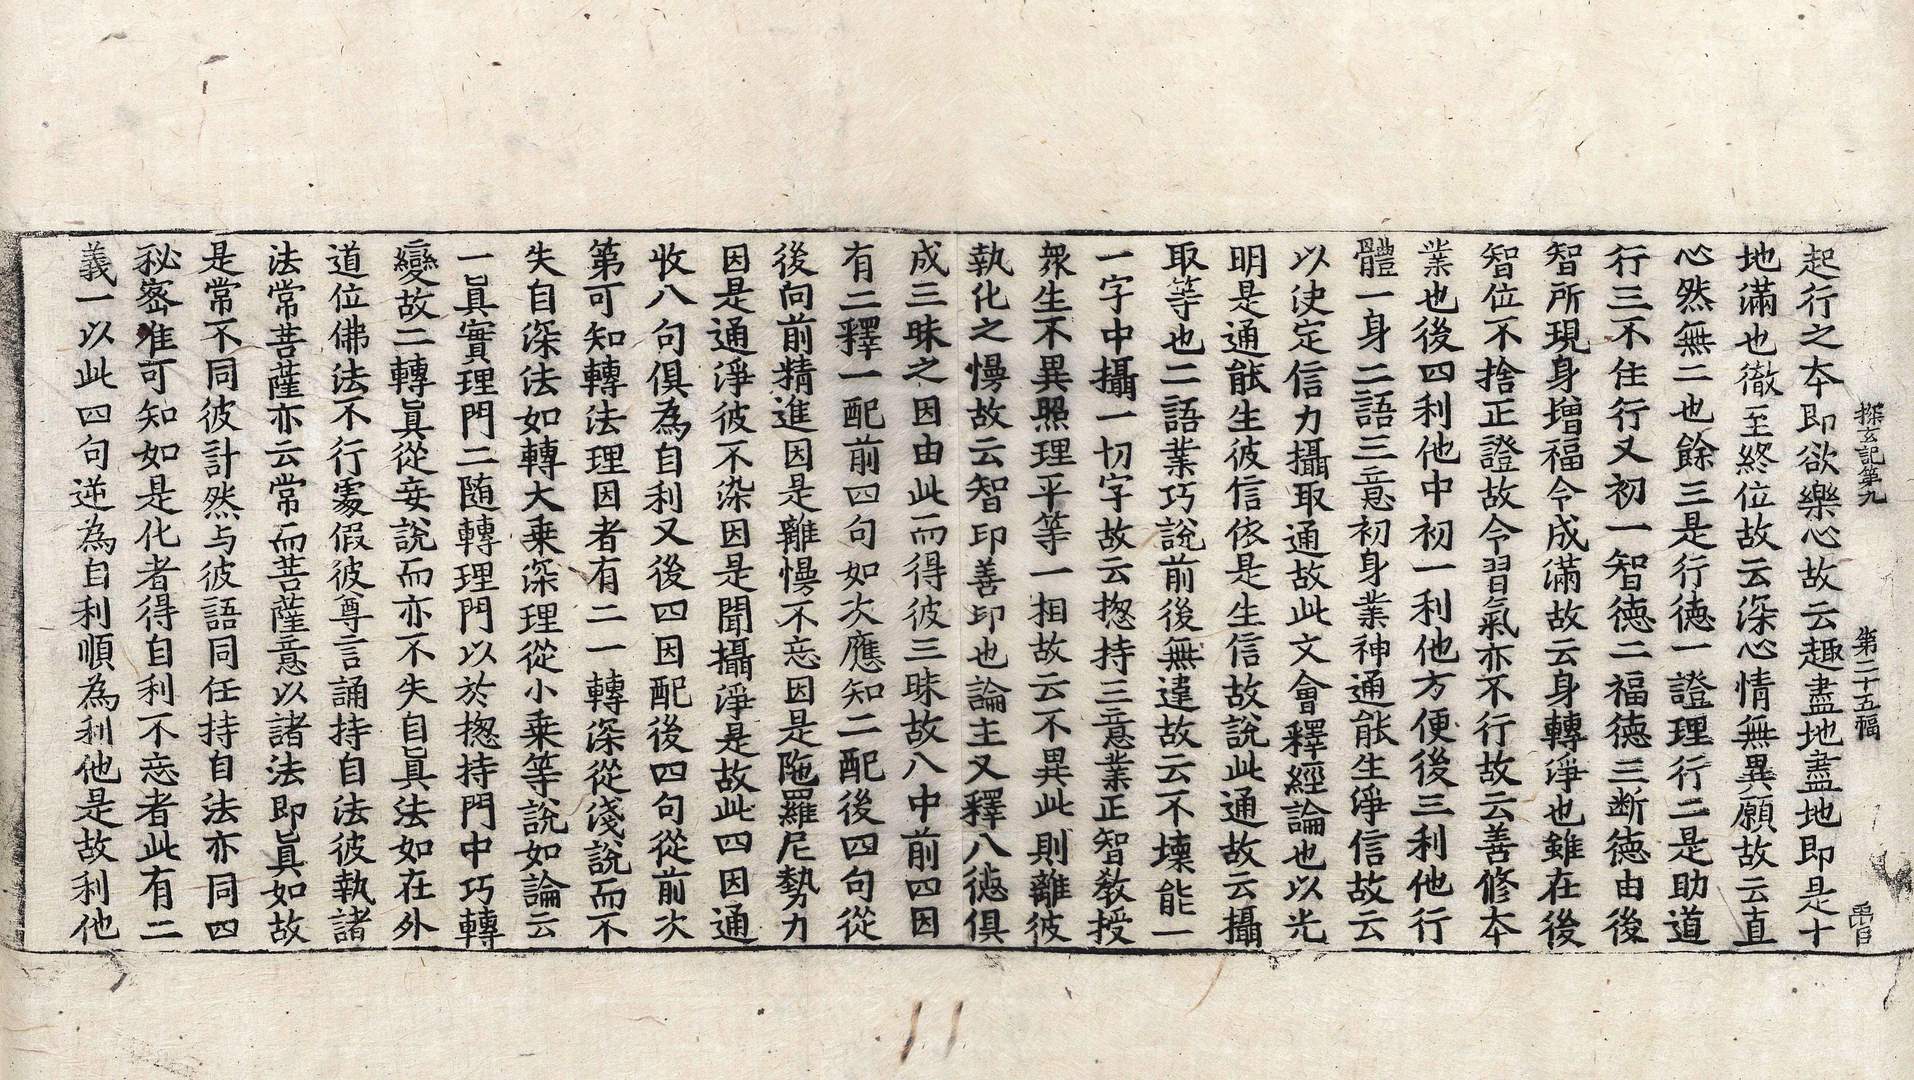 探玄記第九　第二十五幅　禹目
起行之本即欲樂心故云趣盡地盡地即是十
地滿也徹至終位故云深心情無異願故云直
心然無二也餘三是行德一證理行二是助道
行三不住行又初一智德二福德三断德由後
智所現身增福令成滿故云身轉淨也雖在後
智位不捨正證故令習氣亦不行故云善修本
業也後四利他中初一利他方便後三利他行
體一身二語三意初身業神通能生淨信故云
以決定信力攝取通故此文會釋經論也以光
明是通能生彼信依是生信故說此通故云攝
取等也二語業巧說前後無違故云不壞能一
一字中攝一切字故云揔持三意業正智教授
衆生不異照理平等一相故云不異此則離彼
執化之慢故云智印善印也論主又釋八德俱
成三昧之因由此而得彼三昧故八中前四因
有二釋一配前四句如次應知二配後四句從
後向前精進因是離慢不忘因是陁羅尼勢力
因是通淨彼不染因是聞攝淨是故此四因通
收八句俱為自利又後四因配後四句從前次
第可知轉法理因者有二一轉深從淺說而不
失自深法如轉大乗深理從小乗等說如論云
一眞實理門二随轉理門以於揔持門中巧轉
變故二轉眞從妄說而亦不失自眞法如在外
道位佛法不行䖏假彼尊言誦持自法彼執諸
法常菩薩亦云常而菩薩意以諸法即眞如故
是常不同彼計然与彼語同任持自法亦同四
秘密准可知如是化者得自利不忘者此有二
義一以此四句逆為自利順為利他是故利他